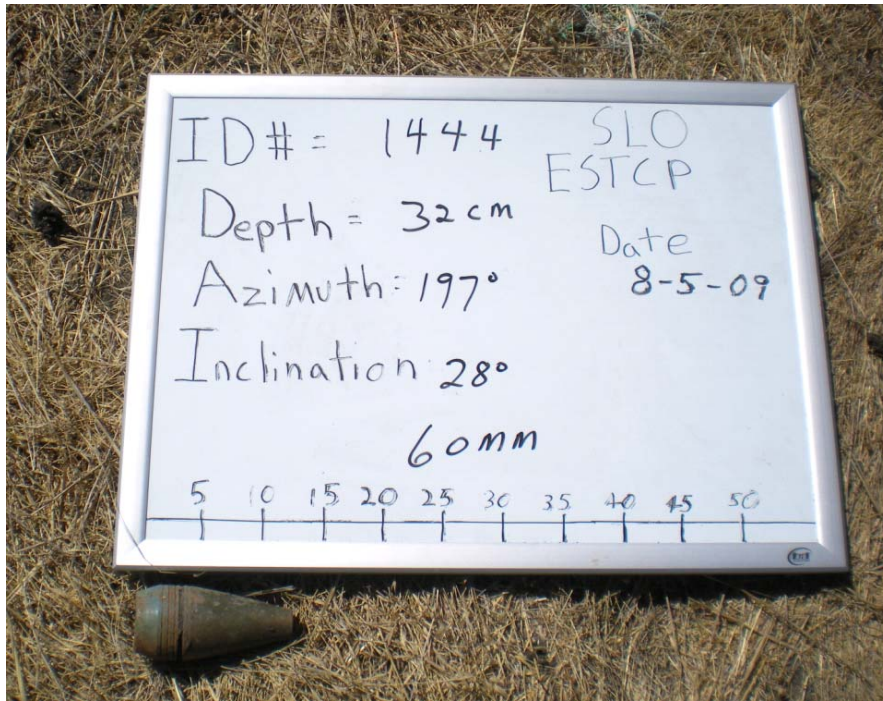 ID# = 1444
SLO
ESTCP
Depth = 32cm
Date
Azimuth: 197°
8-5-09
Inclination 28°
60mm
5 10 15 20 25 30 35 40 45 50